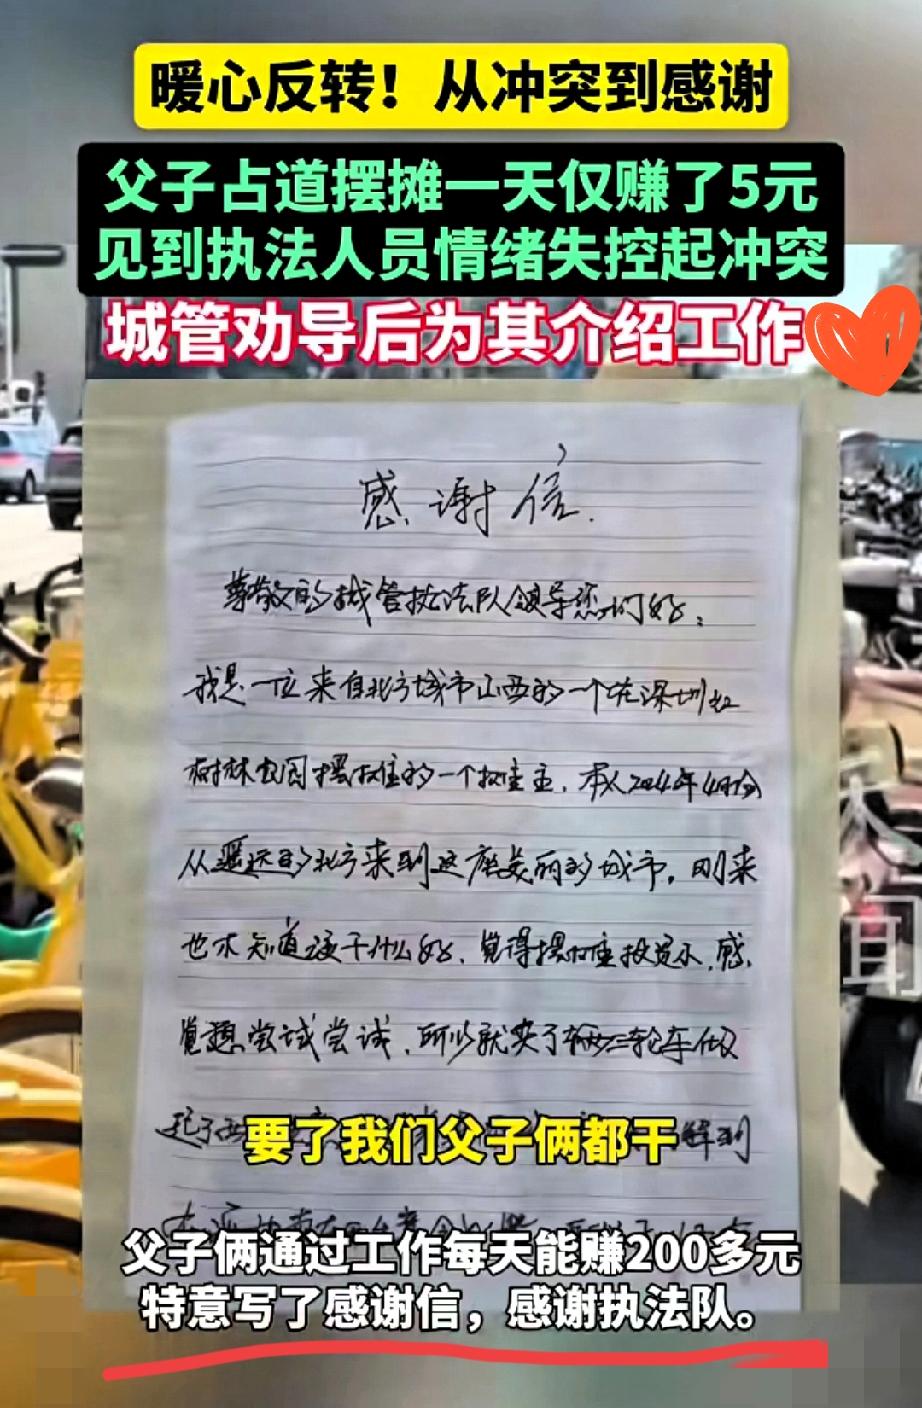 暖心反转！从冲突到感谢
父子占道摆摊一天仅赚了5元
见到执法人员情绪失控起冲突
城管劝导后为其介绍工作
感谢信.
尊敬的城管执法队领导您们好：
我是一位来自北方城市山西的一个在深圳红
树林公园摆摊的一个摊主，本人2024年4月份
从遥远的北方来到这座美丽的城市，刚来
也不知道该干什么好，觉得摆摊投资小，感
觉想尝试尝试，所以就买了辆三轮车做
起了
解到
要了我们父子俩都干
父子俩通过工作每天能赚200多元
特意写了感谢信，感谢执法队。